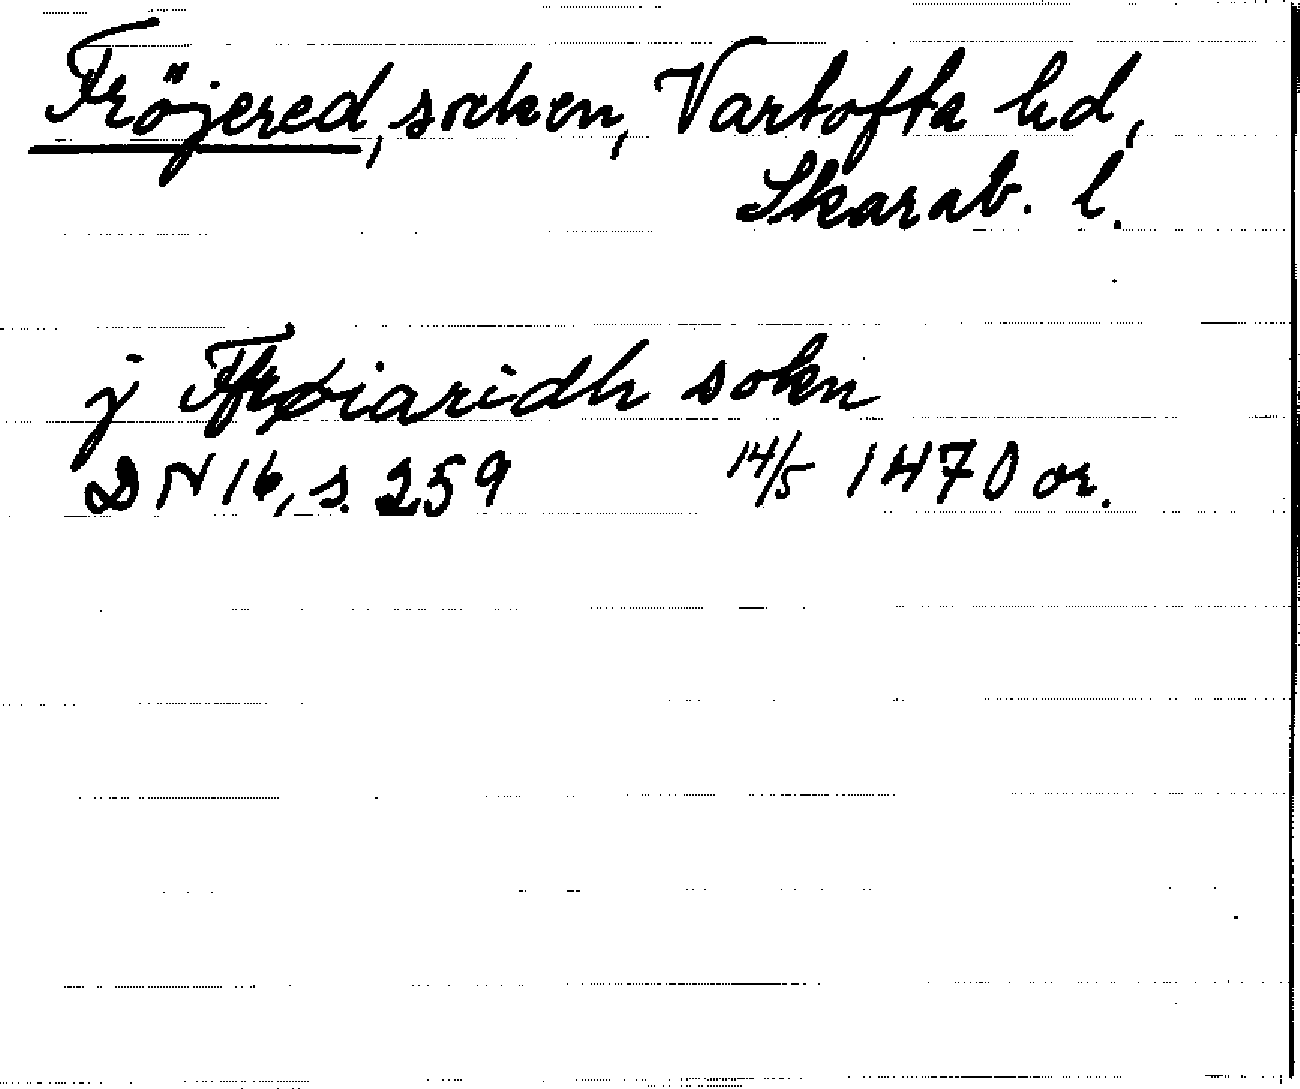 Fröjered, socken, Vartofta hd,
Skarab. l.
j Ffrøiaridh sokn
DN 16, s. 259 14/5 1470 or.